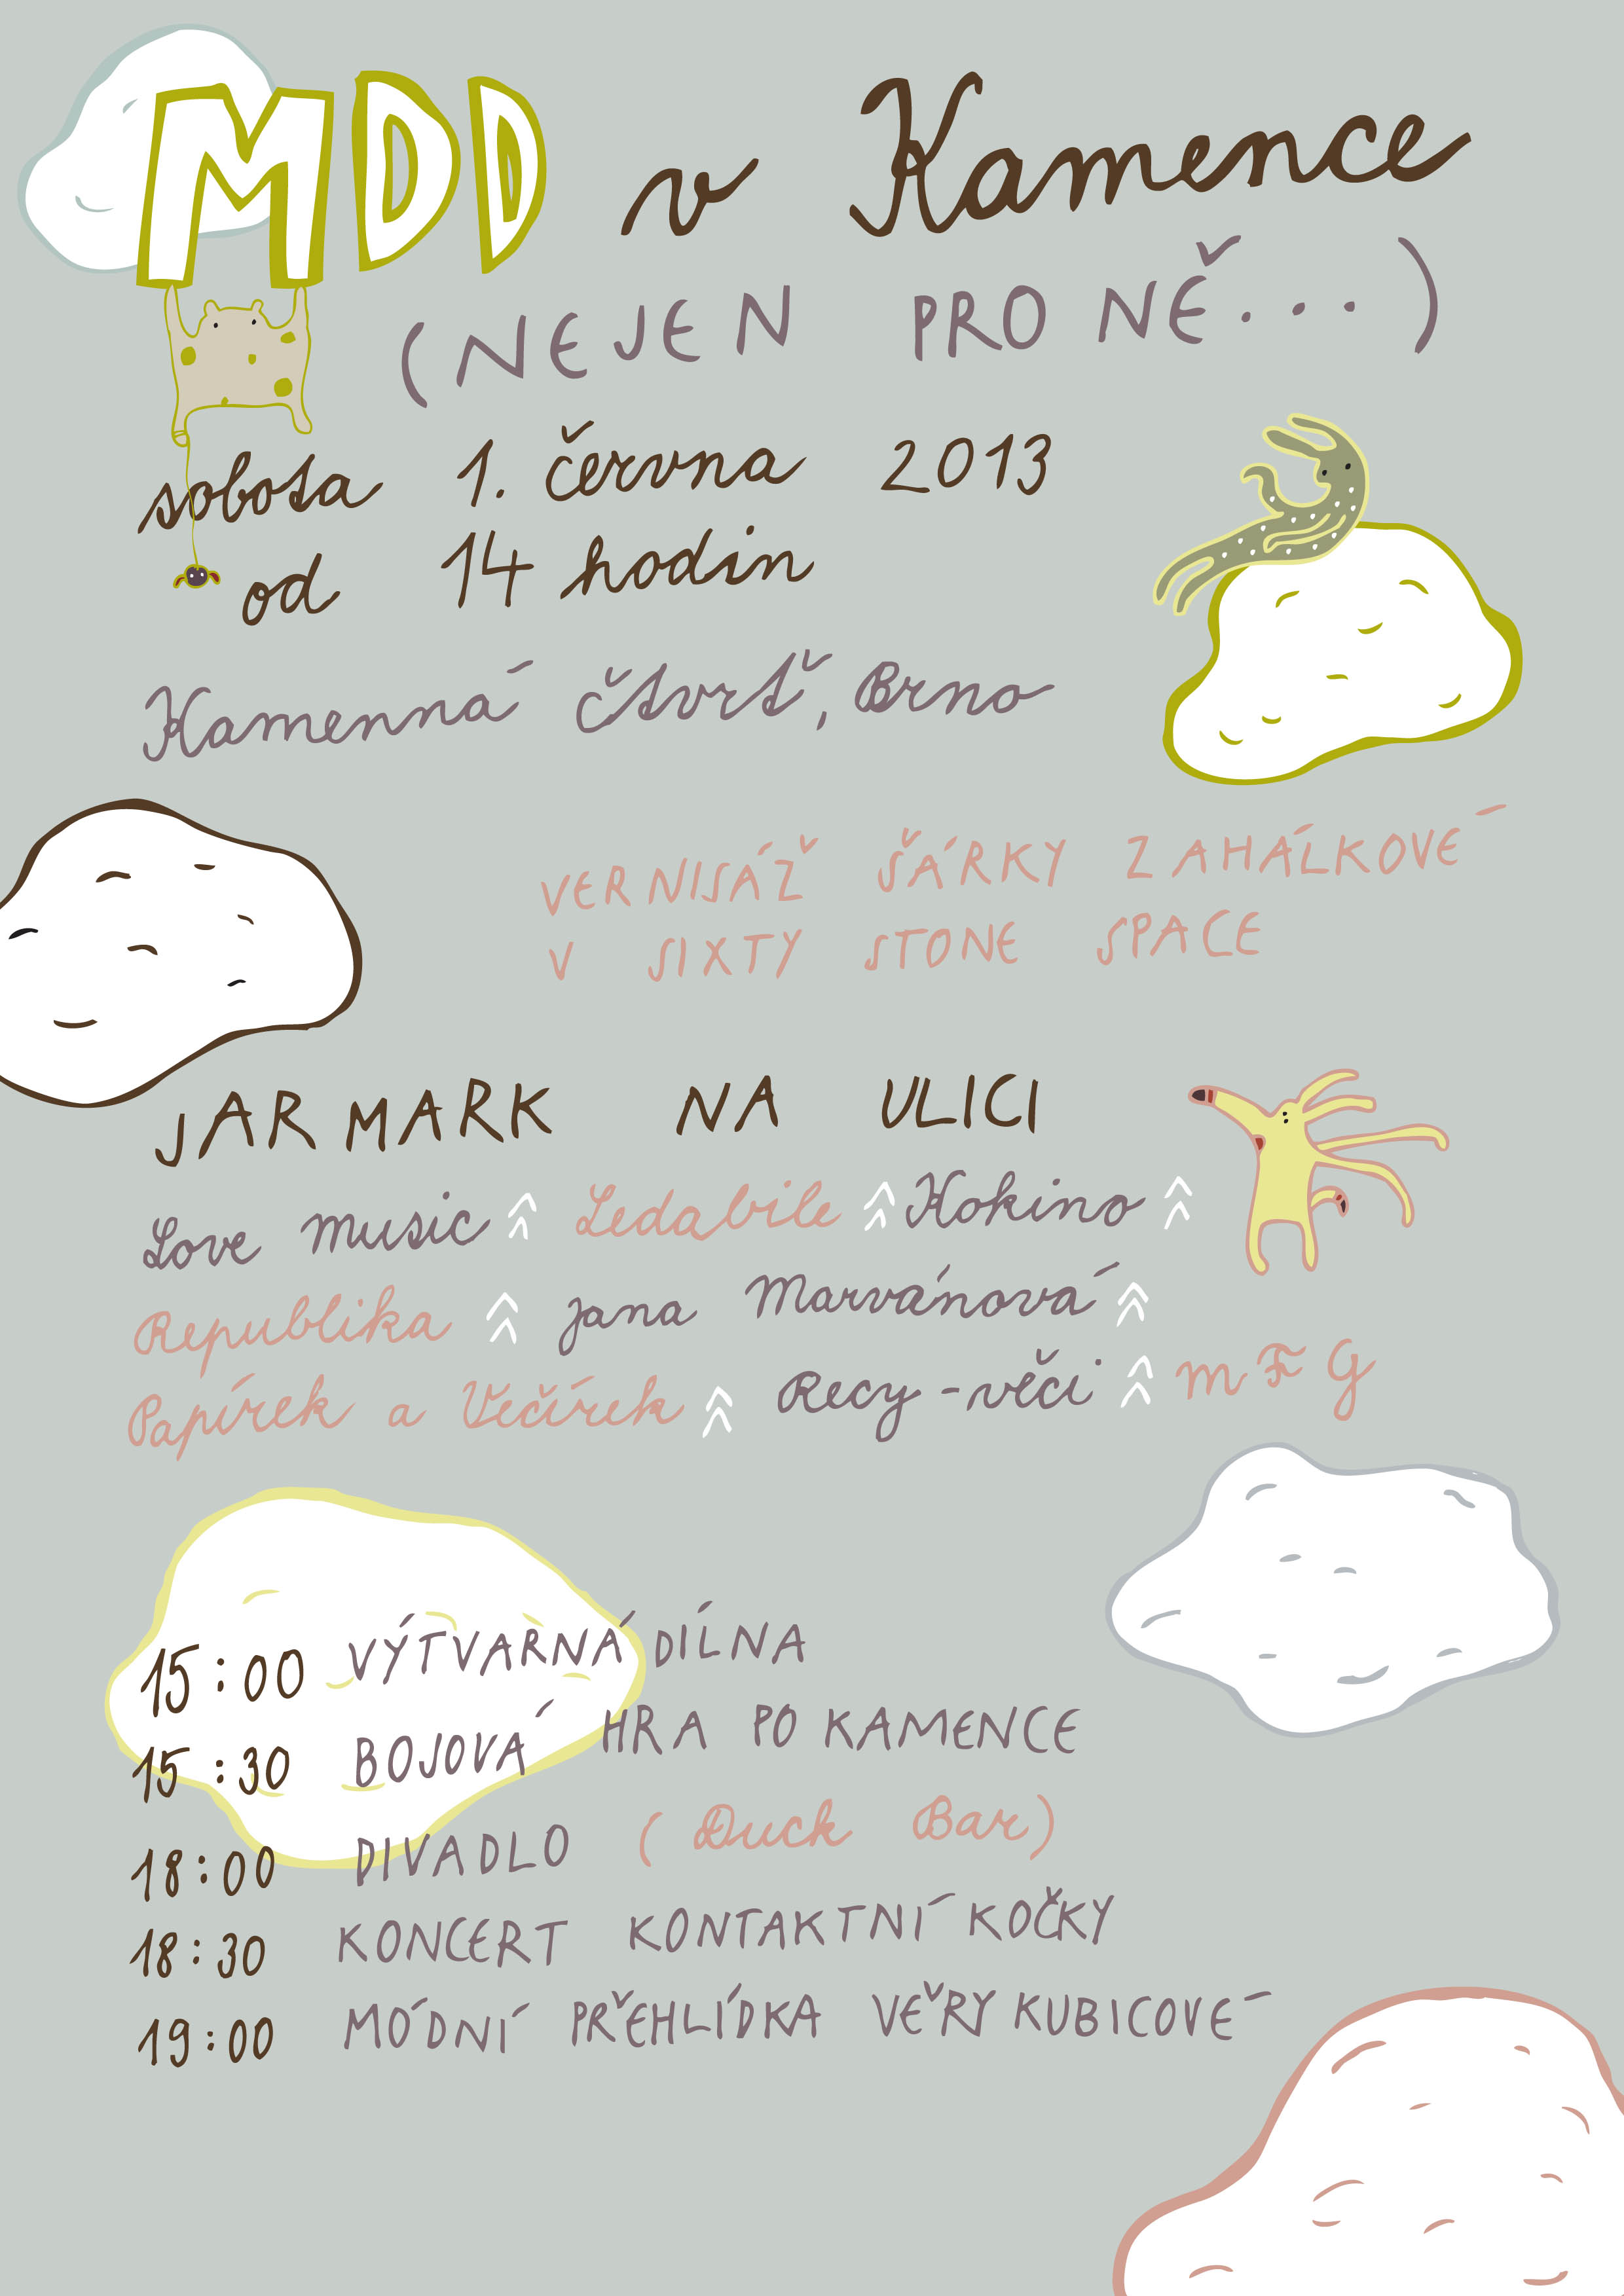 MDD v Kamence
(NEJEN PRO NĚ...)
sobota 1. června 2013
od 14 hodin
Kamenná čtvrť, Brno
VERNISÁŽ ŠÁRKY ZAHÁLKOVÉ
V SIXTY STONE SPACE
JARMARK NA ULICI
Love music Ledabile Kokino
Republika jana Marvánová
Papírek a Večírek Recy-věci
15:00 VÝTVARNÁ DÍLNA
15:30 BOJOVÁ HRA PO KAMENCE
18:00 DIVADLO (Duck Bar)
18:30 KONCERT KONTAKTNÍ KOČKY
19:00 MÓDNÍ PŘEHLÍDKA VĚRY KUBICOVÉ